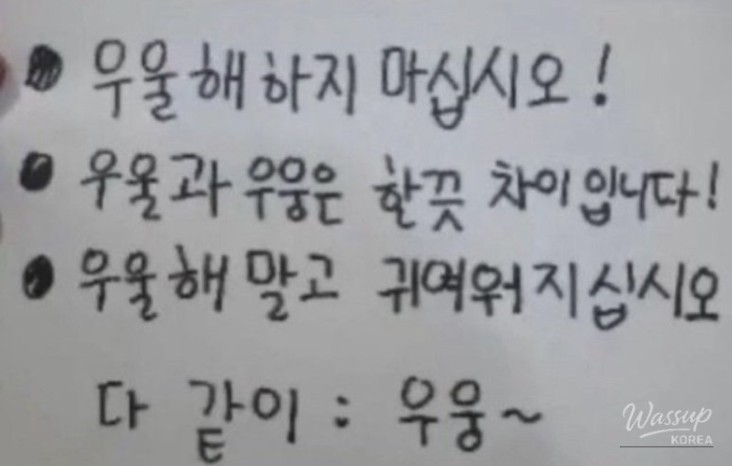 ● 우울해하지 마십시오!
● 우울과 우웅은 한끗 차이입니다!
● 우울해 말고 귀여워지십시오
다 같이 : 우웅~
Wassup
KOREA